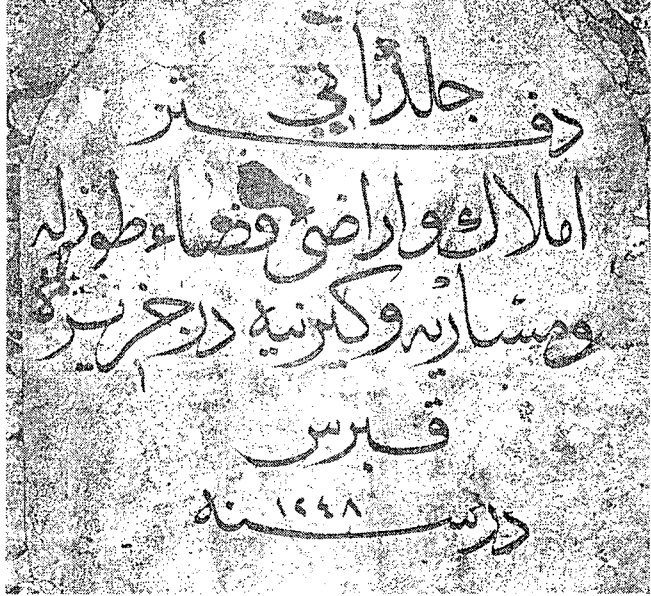 جلد ثانی
دفتر
املاك و اراضی قضاء طوزله
ومساريه وكيرنيه در جزيره
قبرس
در سنه ١٢٤٨